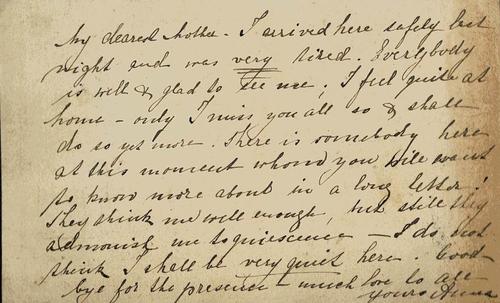 My dearest Mother - I arrived here safely last
night and was very tired. Everybody
is well & glad to see me; I feel quite at
home - only I miss you all so & shall
do so yet more. There is somebody here
at this moment whom you will want
to know more about in a long letter!
They think me well enough, but still they
admonish me to quiescence - I do not
think I shall be very quiet here. Good-
bye for the presence - much love to all
Yours Anna